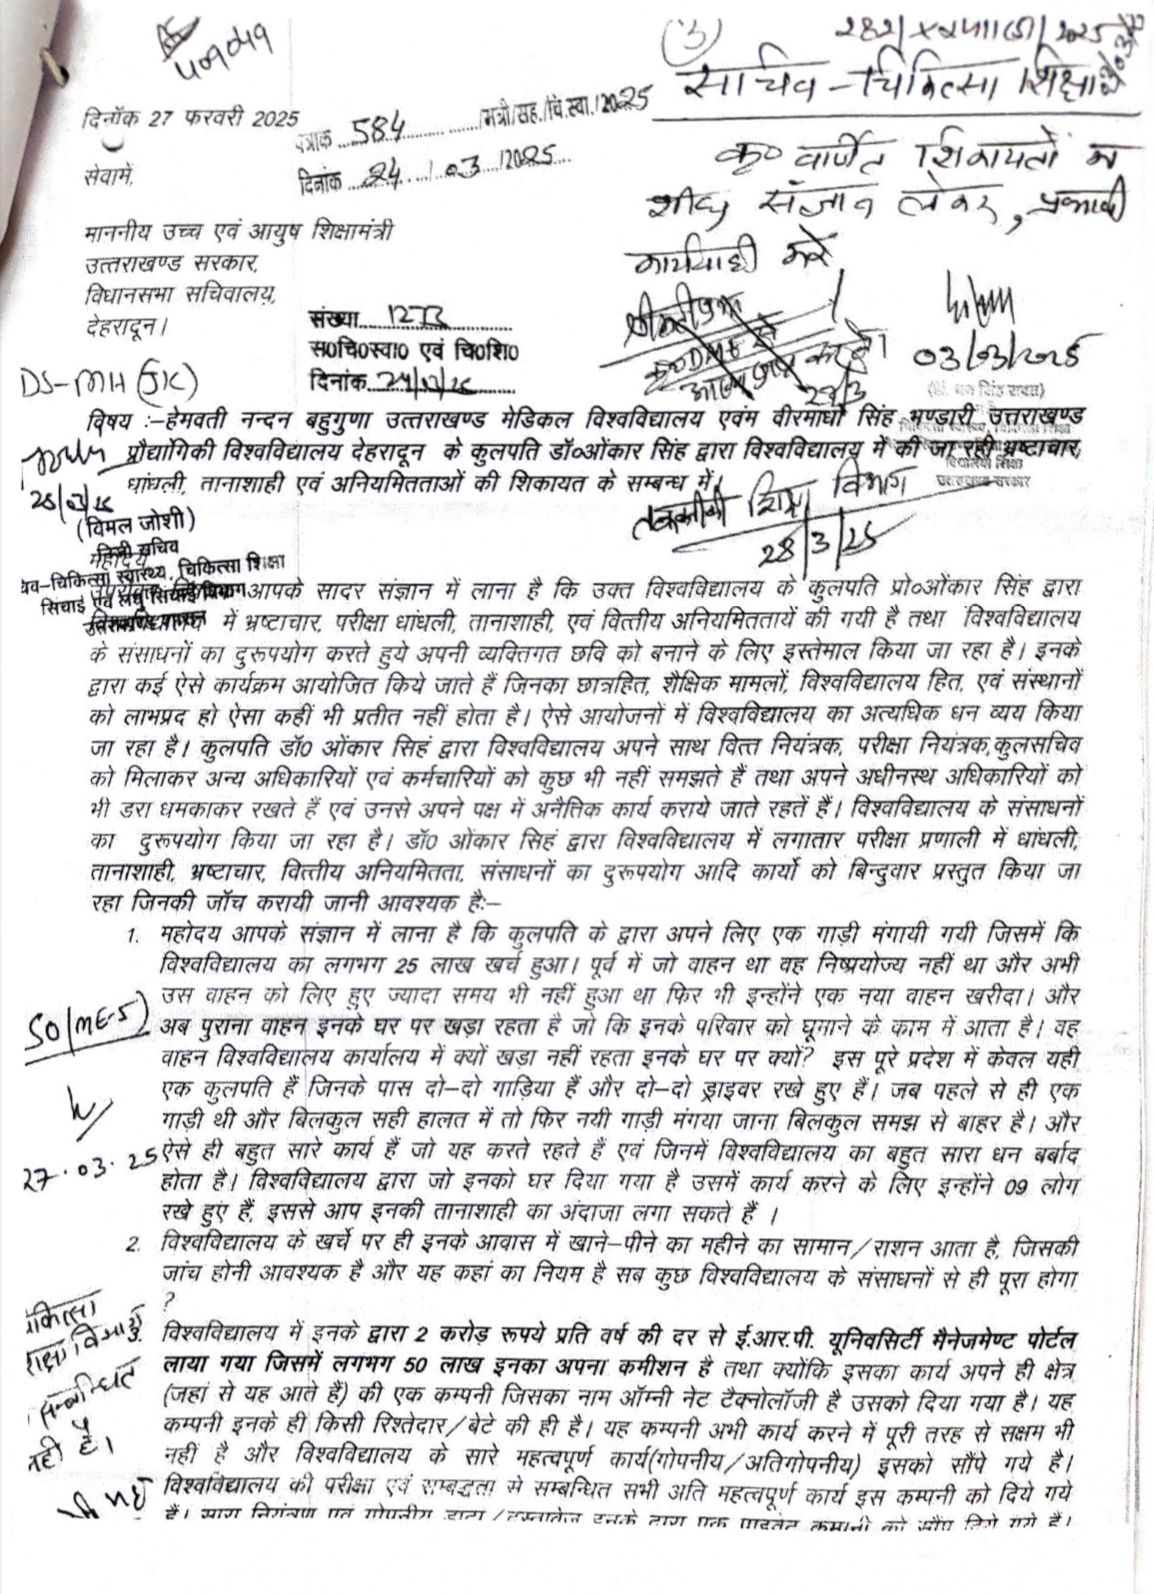 ५१०५१
(3)
282/
2025
सचिव-चिकित्सा शिक्षा
दिनॉक 27 फरवरी 2025
पत्रांक 584 /मंत्री/सह./चि.स्वा./2025
दिनांक 24/03/2025
कृ० वर्णित शिकायतों का
शीघ्र संज्ञान लेकर, प्रभावी
कार्यवाही करें
सेवामें,
माननीय उच्च एवं आयुष शिक्षामंत्री
उत्तराखण्ड सरकार,
विधानसभा सचिवालय,
देहरादून।
संख्या
स०चि०स्वा० एवं चि०शि०
दिनांक
03/03/2025
28/3
DS-MH (JK)
विषय :–हेमवती नन्दन बहुगुणा उत्तराखण्ड मेडिकल विश्वविद्यालय एवंम वीरमाधो सिंह भण्डारी उत्तराखण्ड
प्रौद्यागिकी विश्वविद्यालय देहरादून के कुलपति डॉ०ओंकार सिंह द्वारा विश्वविद्यालय में की जा रही भ्रष्टाचार,
धांधली, तानाशाही एवं अनियमितताओं की शिकायत के सम्बन्ध में।
तकनीकी शिक्षा विभाग
28/3/25
25/03/25
(विमल जोशी)
निजी सचिव
महोदय
सचिव–चिकित्सा स्वास्थ्य, चिकित्सा शिक्षा
सिंचाई एवं लघु सिंचाई विभाग
उत्तराखण्ड शासन
आपके सादर संज्ञान में लाना है कि उक्त विश्वविद्यालय के कुलपति प्रो०ओंकार सिंह द्वारा
में भ्रष्टाचार, परीक्षा धांधली, तानाशाही, एवं वित्तीय अनियमिततायें की गयी है तथा विश्वविद्यालय
के संसाधनों का दुरूपयोग करते हुये अपनी व्यक्तिगत छवि को बनाने के लिए इस्तेमाल किया जा रहा है। इनके
द्वारा कई ऐसे कार्यक्रम आयोजित किये जाते हैं जिनका छात्रहित, शैक्षिक मामलों, विश्वविद्यालय हित, एवं संस्थानों
को लाभप्रद हो ऐसा कहीं भी प्रतीत नहीं होता है। ऐसे आयोजनों में विश्वविद्यालय का अत्यधिक धन व्यय किया
जा रहा है। कुलपति डॉ0 ओंकार सिहं द्वारा विश्वविद्यालय अपने साथ वित्त नियंत्रक, परीक्षा नियंत्रक,कुलसचिव
को मिलाकर अन्य अधिकारियों एवं कर्मचारियों को कुछ भी नहीं समझते हैं तथा अपने अधीनस्थ अधिकारियों को
भी डरा धमकाकर रखते हैं एवं उनसे अपने पक्ष में अनैतिक कार्य कराये जाते रहतें हैं। विश्वविद्यालय के संसाधनों
का दुरूपयोग किया जा रहा है। डॉ0 ओंकार सिहं द्वारा विश्वविद्यालय में लगातार परीक्षा प्रणाली में धांधली,
तानाशाही, भ्रष्टाचार, वित्तीय अनियमितता, संसाधनों का दुरूपयोग आदि कार्यो को बिन्दुवार प्रस्तुत किया जा
रहा जिनकी जॉच करायी जानी आवश्यक है:–
1. महोदय आपके संज्ञान में लाना है कि कुलपति के द्वारा अपने लिए एक गाड़ी मंगायी गयी जिसमें कि
विश्वविद्यालय का लगभग 25 लाख खर्च हुआ। पूर्व में जो वाहन था वह निष्प्रयोज्य नहीं था और अभी
उस वाहन को लिए हुए ज्यादा समय भी नहीं हुआ था फिर भी इन्होंने एक नया वाहन खरीदा। और
अब पुराना वाहन इनके घर पर खड़ा रहता है जो कि इनके परिवार को घूमाने के काम में आता है। वह
वाहन विश्वविद्यालय कार्यालय में क्यों खड़ा नहीं रहता इनके घर पर क्यों? इस पूरे प्रदेश में केवल यही
एक कुलपति हैं जिनके पास दो–दो गाड़िया हैं और दो–दो ड्राइवर रखे हुए हैं। जब पहले से ही एक
गाड़ी थी और बिलकुल सही हालत में तो फिर नयी गाड़ी मंगया जाना बिलकुल समझ से बाहर है। और
ऐसे ही बहुत सारे कार्य हैं जो यह करते रहते हैं एवं जिनमें विश्वविद्यालय का बहुत सारा धन बर्बाद
होता है। विश्वविद्यालय द्वारा जो इनको घर दिया गया है उसमें कार्य करने के लिए इन्होंने 09 लोग
रखे हुए हैं, इससे आप इनकी तानाशाही का अंदाजा लगा सकते हैं ।
SO/ME-5)
27.03.25
2. विश्वविद्यालय के खर्चे पर ही इनके आवास में खाने–पीने का महीने का सामान/राशन आता है, जिसकी
जांच होनी आवश्यक है और यह कहां का नियम है सब कुछ विश्वविद्यालय के संसाधनों से ही पूरा होगा
?
3. विश्वविद्यालय में इनके द्वारा 2 करोड़ रूपये प्रति वर्ष की दर से ई.आर.पी. यूनिवसिर्टी मैनेजमेण्ट पोर्टल
लाया गया जिसमें लगभग 50 लाख इनका अपना कमीशन है तथा क्योंकि इसका कार्य अपने ही क्षेत्र
(जहां से यह आते हैं) की एक कम्पनी जिसका नाम ऑम्नी नेट टैक्नोलॉजी है उसको दिया गया है। यह
कम्पनी इनके ही किसी रिश्तेदार/बेटे की ही है। यह कम्पनी अभी कार्य करने में पूरी तरह से सक्षम भी
नहीं है और विश्वविद्यालय के सारे महत्वपूर्ण कार्य(गोपनीय/अतिगोपनीय) इसको सौंपे गये है।
विश्वविद्यालय की परीक्षा एवं सम्बद्धता से सम्बन्धित सभी अति महत्वपूर्ण कार्य इस कम्पनी को दिये गये
हैं। सारा नियंत्रण एवं गोपनीय डाटा/दस्तावेज इनके द्वारा एक प्राइवेट कम्पनी को सौंप दिये गये हैं।
चिकित्सा
शिक्षा विभाग
सम्बन्धित
नहीं है।